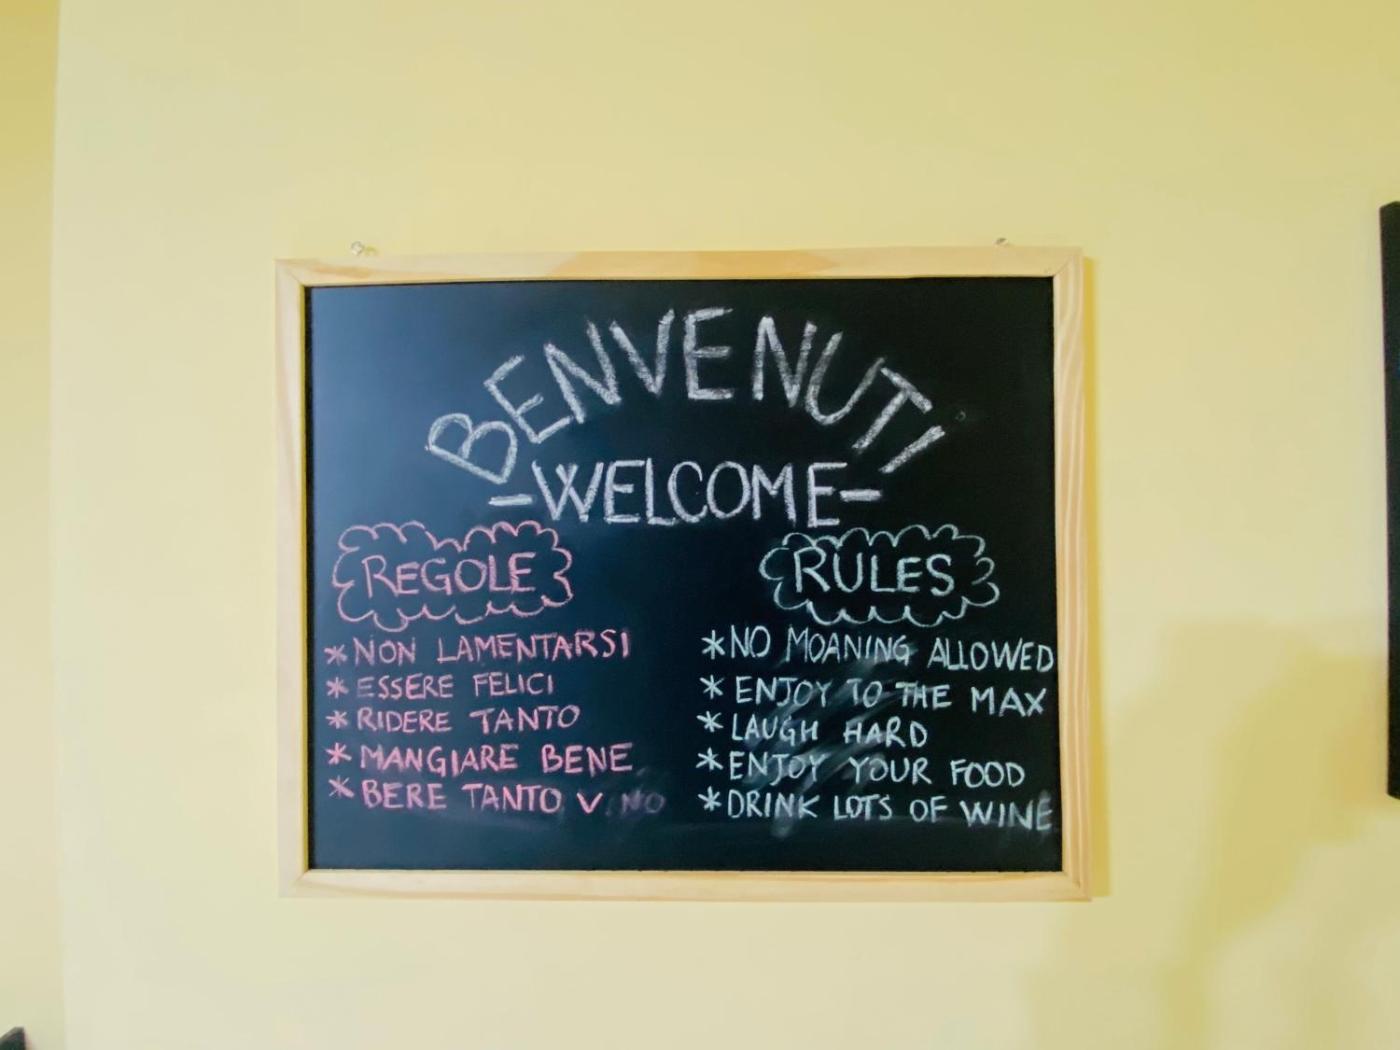 BENVENUTI
-WELCOME-
REGOLE
* NON LAMENTARSI
* ESSERE FELICI
* RIDERE TANTO
* MANGIARE BENE
* BERE TANTO V NO
RULES
* NO MOANING ALLOWED
* ENJOY TO THE MAX
* LAUGH HARD
* ENJOY YOUR FOOD
* DRINK LOTS OF WINE